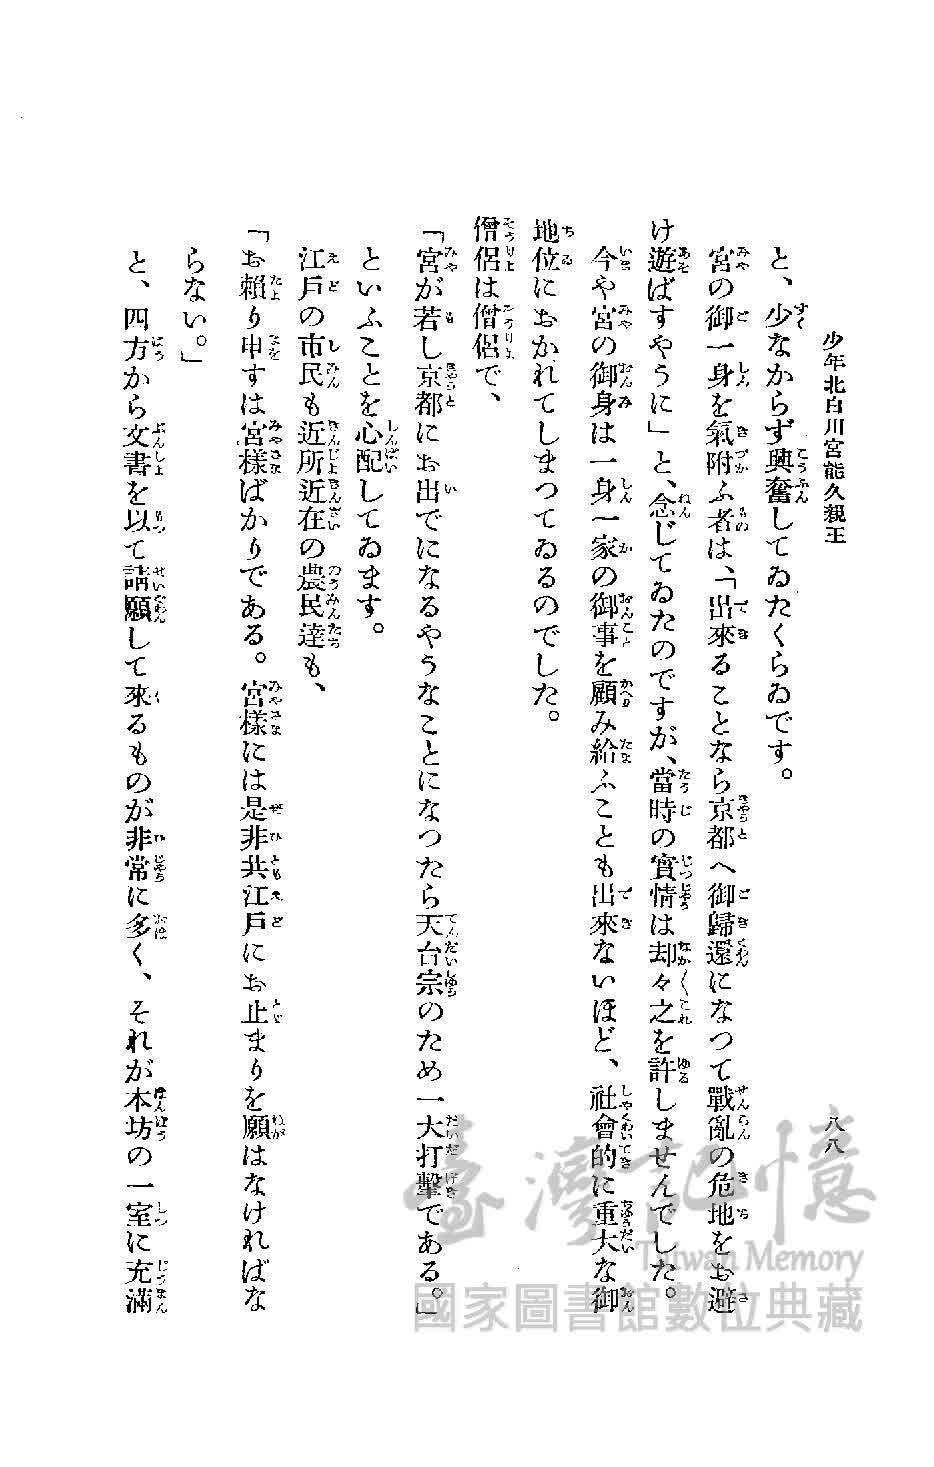 少年北白川宮能久親王
八八
と、少なからず興奮してゐたくらゐです。
宮の御一身を氣附ふ者は、「出來ることなら京都へ御歸還になつて戰亂の危地をお避
け遊ばすやうに」と、念じてゐたのですが、當時の實情は却々之を許しませんでした。
今や宮の御身は一身一家の御事を顧み給ふことも出來ないほど、社會的に重大な御
地位におかれてしまつてゐるのでした。
僧侶は僧侶で、
「宮が若し京都にお出でになるやうなことになつたら天台宗のため一大打擊である。」
といふことを心配してゐます。
江戶の市民も近所近在の農民達も、
「お賴り申すは宮樣ばかりである。宮樣には是非共江戶にお止まりを願はなければな
らない。」
と、四方から文書を以て請願して來るものが非常に多く、それが本坊の一室に充滿
臺灣記憶
Taiwan Memory
國家圖書館數位典藏